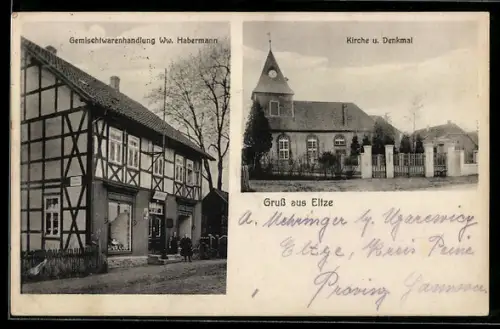 Gemischtwarenhandlung Ww. Habermann
Kirche u. Denkmal
Gruß aus Eltze
A. Mehringer
Eltze, Kreis Peine
Provinz Hannover